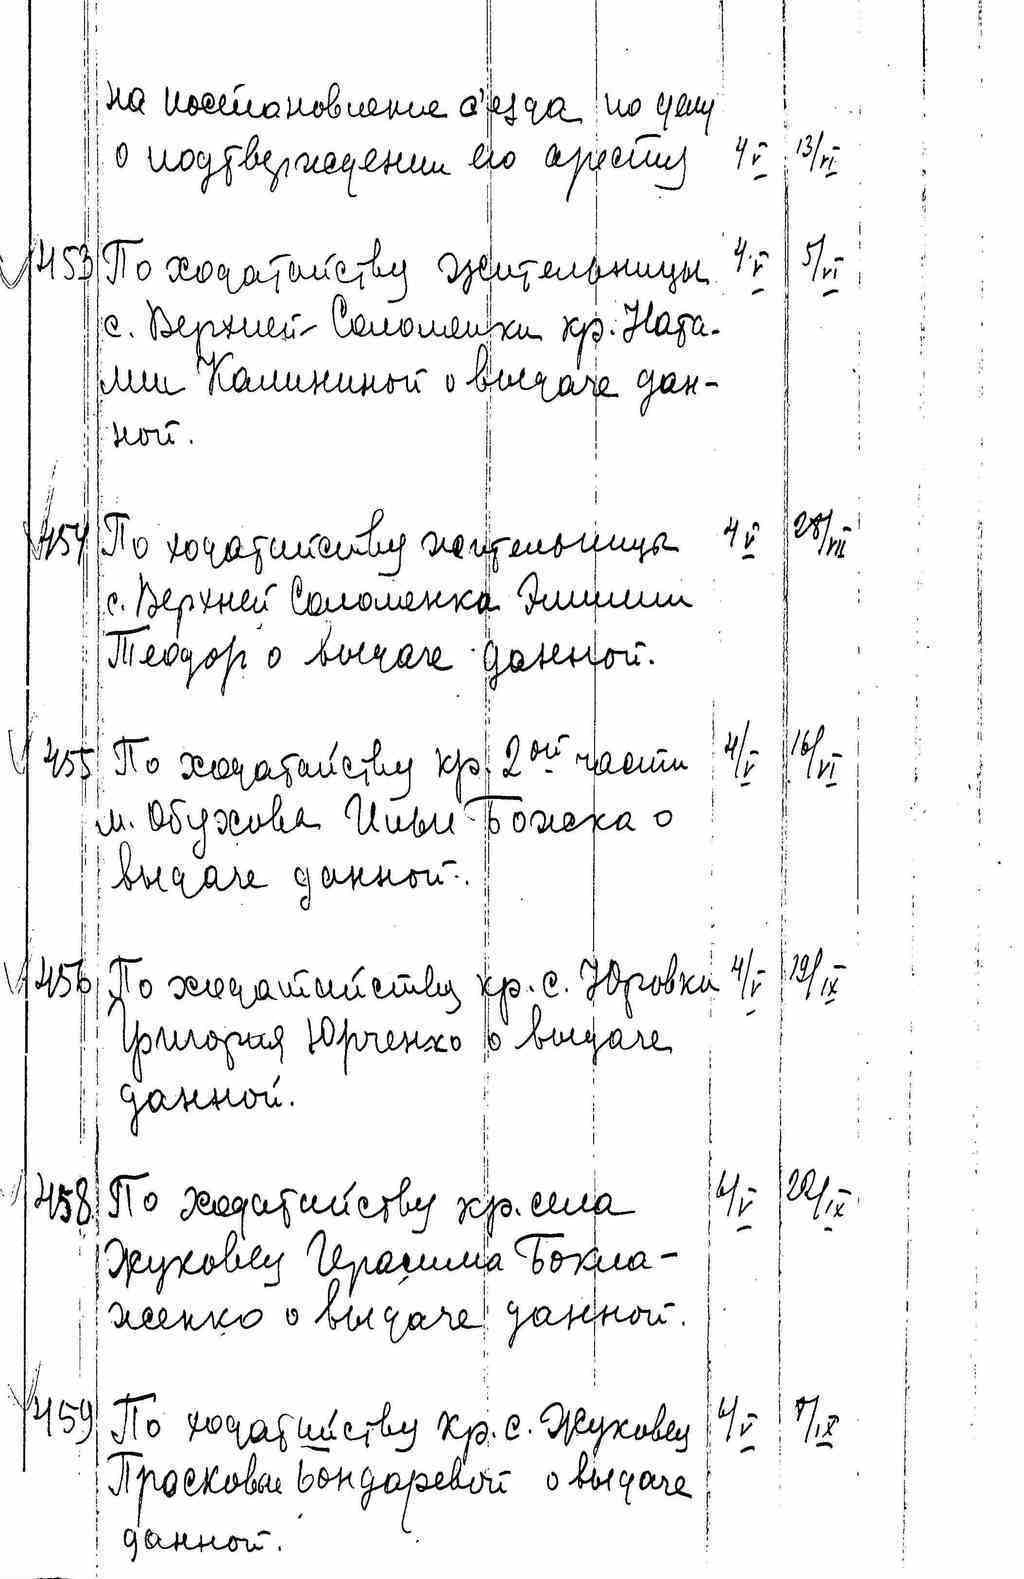 на постановление с'езда по делу
о подтверждении его ареста 4 V 13/VI
453 По ходатайству жительницы 4 V 5/VI
с. Верхней Соломенки кр. Ната-
лии Калининой о выдаче дан-
ной.
454 По ходатайству жительницы 4 V 28/VII
с. Верхней Соломенка Эмилии
Теодор о выдаче данной.
455 По ходатайству кр. 2ой части 4/V 16/VI
м. Обухова Ильи Божека о
выдаче данной.
456 По ходатайству кр. с. Юровки 4/V 19/IX
Григория Юрченко о выдаче
данной.
458 По ходатайству кр. села 4/V 22/IX
Жуковец Герасима Бокла-
женко о выдаче данной.
459 По ходатайству кр. с. Жуковец 4/V 7/IX
Прасковьи Бондаревой о выдаче
данной.